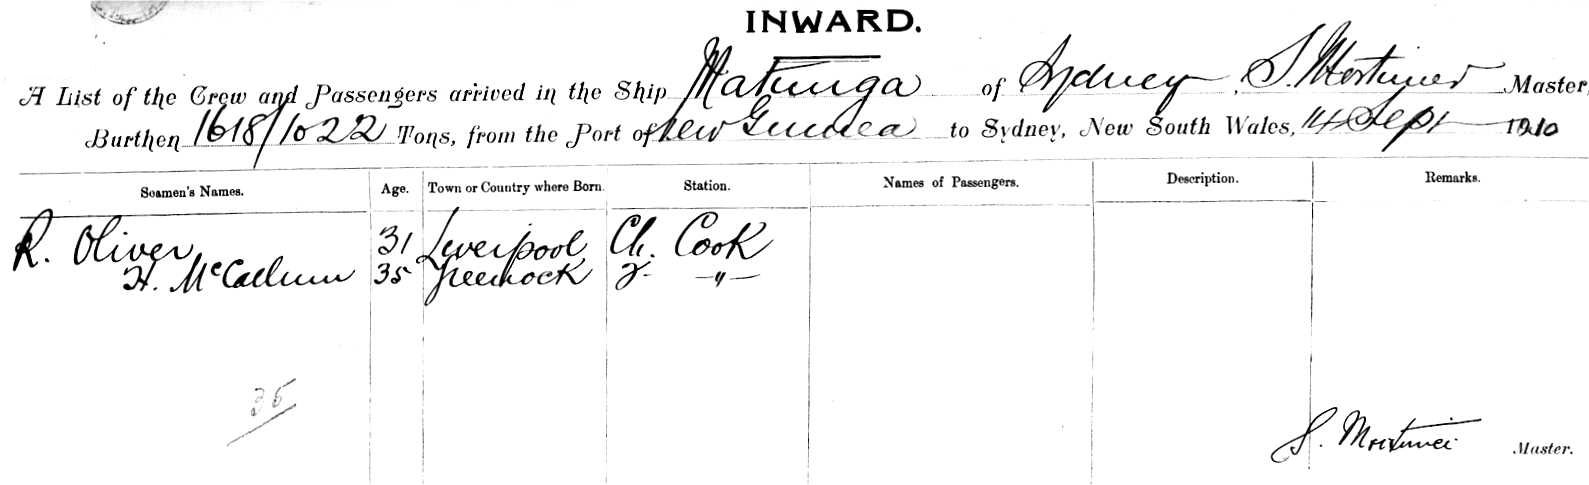 INWARD.
A List of the Crew and Passengers arrived in the Ship Matunga of Sydney, S. Mortimer Master,
Burthen 1618/1022 Tons, from the Port of New Guinea to Sydney, New South Wales, 14 Sept 1910
Seamen's Names. Age. Town or Country where Born. Station. Names of Passengers. Description. Remarks.
R. Oliver 31 Liverpool Ch. Cook
H. McCallum 35 Greenock 2 —"—
35
S. Mortimer Master.